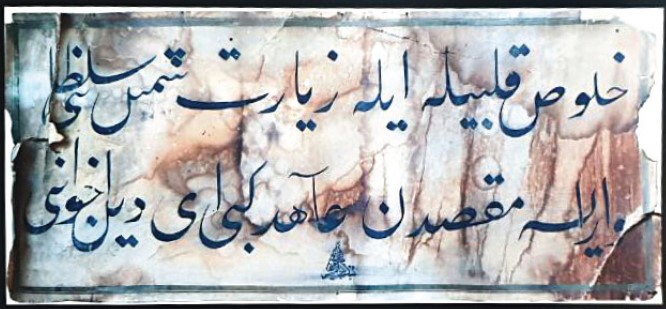 خلوص قلبیله ایله زیارت شمس سلطانی
مقصدن کبی ای دین اخوانی